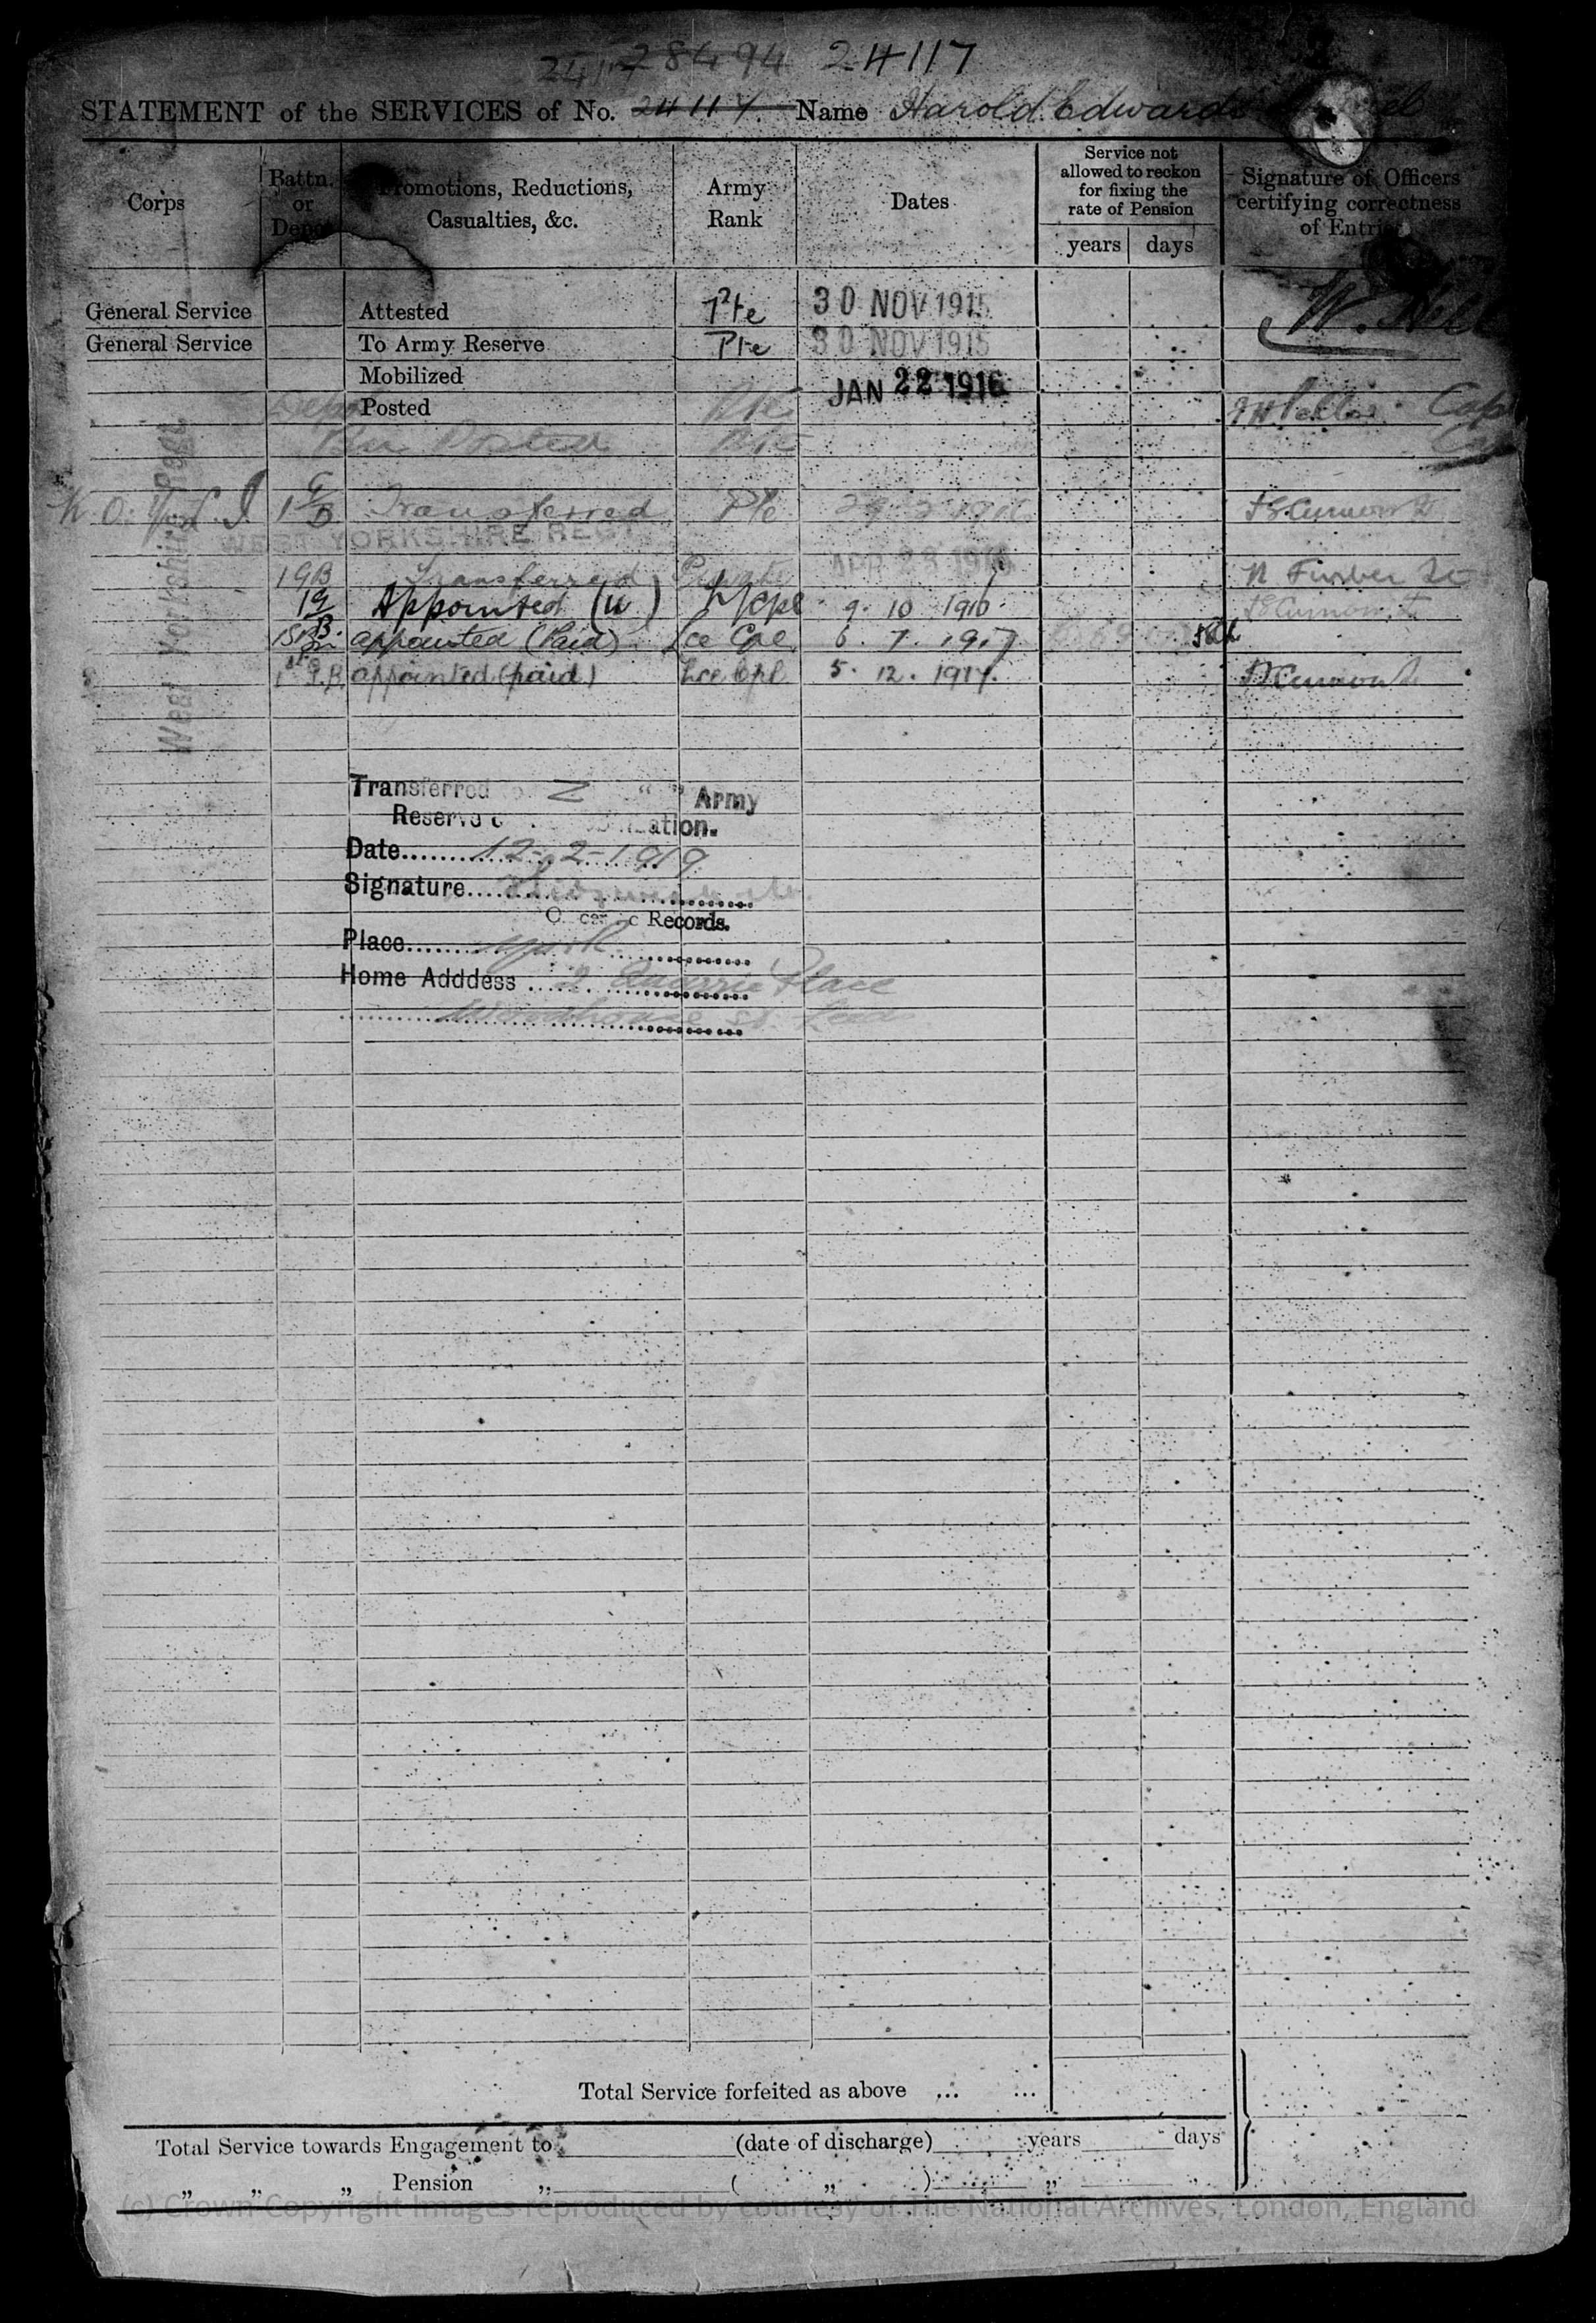 28494 24117
STATEMENT of the SERVICES of No. 24117. Name Harold Edward
Corps
Battn. or Depot
Promotions, Reductions, Casualties, &c.
Army Rank
Dates
Service not allowed to reckon for fixing the rate of Pension
years days
Signature of Officers certifying correctness of Entries
General Service Attested Pte 30 NOV 1915
General Service To Army Reserve Pte 30 NOV 1915
Mobilized JAN 22 1916
Depot Posted Pte Capt
Posted Pte
West Yorkshire Regt
K.O. York. L. I. 1 G B Transferred Pte 1916
WEST YORKSHIRE REGT.
1GB Transferred Private APR 28 1916
1G B. Appointed (u) L/Cpl 9. 10 1916.
1st Bn appointed (Paid) Lce Cpl 6. 7. 1917
1st G.B. appointed (paid) Lce Cpl 5. 12. 1917.
Transferred to Z Army
Reserve
Date 12-2-1919
Signature
Records.
Place York
Home Adddess 2 Place
Woodhouse St. Leeds
Total Service forfeited as above ... ...
Total Service towards Engagement to (date of discharge) years days
„ „ „ Pension „ ( „ ) „
(c) Crown Copyright Images reproduced by courtesy of The National Archives, London, England